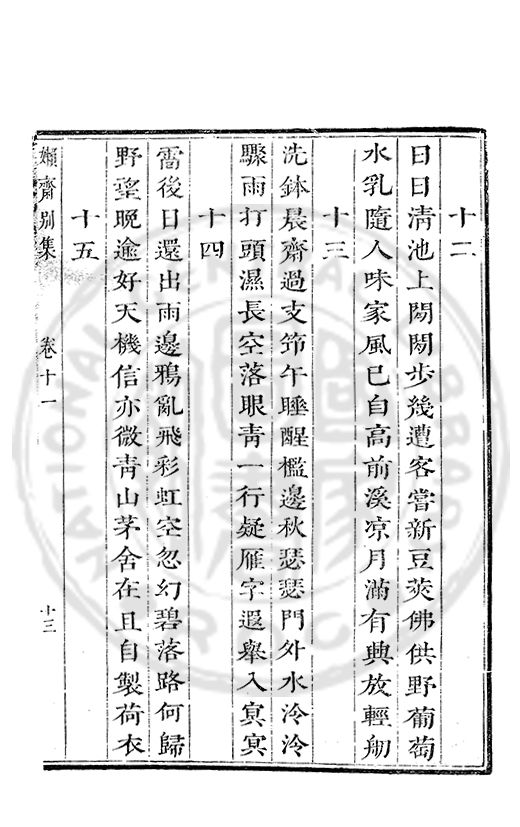 十二
日日清池上閑閑步幾遭客嘗新豆莢佛供野葡萄
水乳隨人味家風已自高前溪凉月滿有興放輕舠
十三
洗鉢晨齋過支筇午睡醒檻邊秋瑟瑟門外水泠泠
驟雨打頭濕長空落眼青一行疑雁字遐舉入㝠㝠
十四
雷後日還出雨邊鴉亂飛彩虹空忽幻碧落路何歸
野望晚逾好天機信亦微青山茅舍在且自製荷衣
十五
嬾齋別集 卷十一 十三